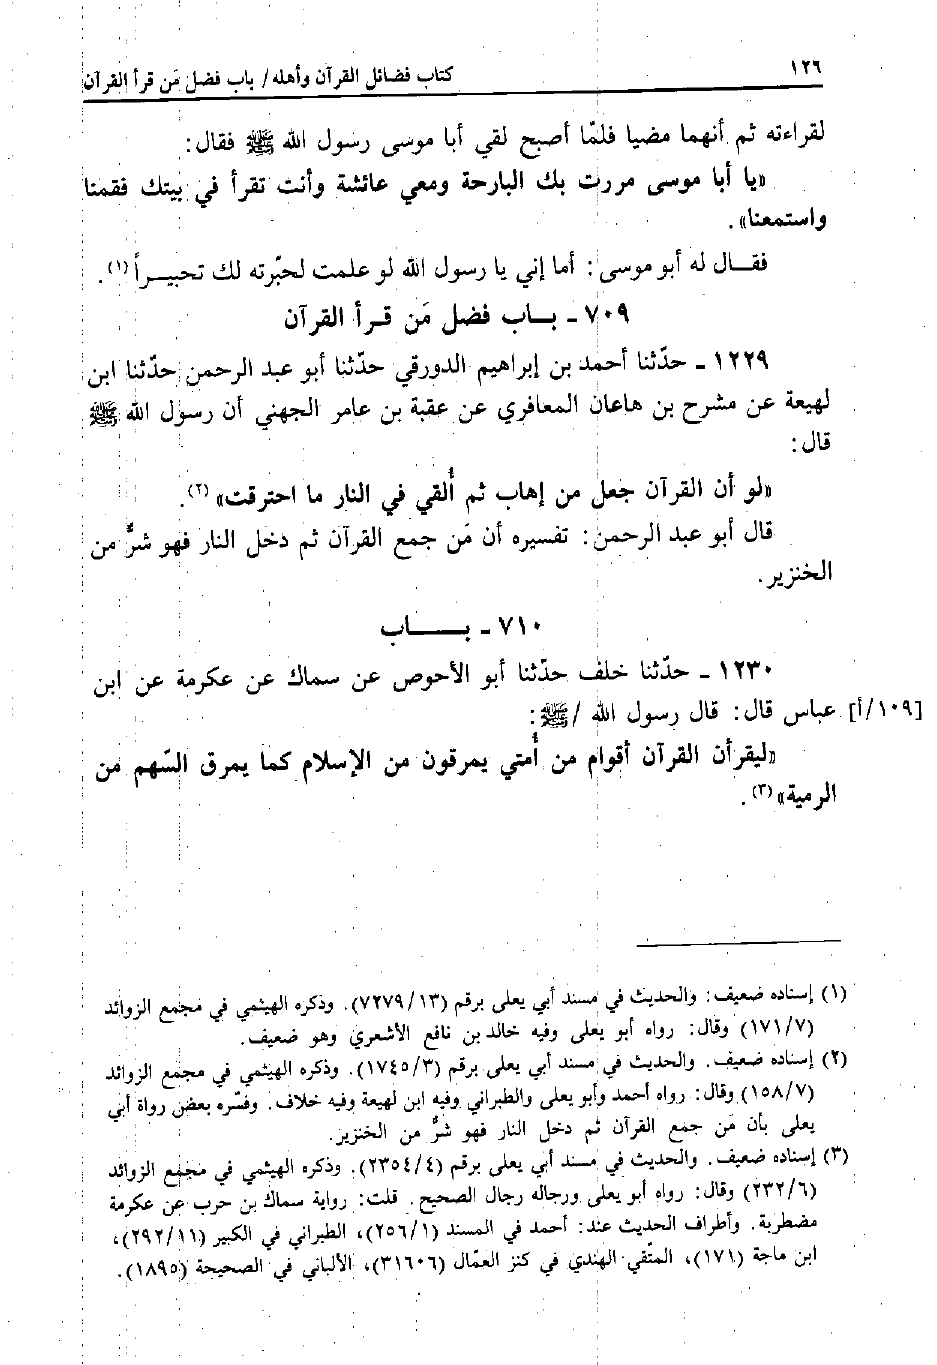 ١٢٦
كتاب فضائل القرآن وأهله/ باب فضل مَن قرأ القرآن
لقراءته ثم أنهما مضيا فلمّا أصبح لقي أبا موسى رسول الله ﷺ فقال:
«يا أبا موسى مررت بك البارحة ومعي عائشة وأنت تقرأ في بيتك فقمنا
واستمعنا».
فقـال له أبو موسى: أما إني يا رسول الله لو علمت لحبّرته لك تحبيـراً(١).
٧٠٩ - بـاب فضل مَن قـرأ القرآن
١٢٢٩ - حدّثنا أحمد بن إبراهيم الدورقي حدّثنا أبو عبد الرحمن حدّثنا ابن
لهيعة عن مشرح بن هاعان المعافري عن عقبة بن عامر الجهني أن رسول الله ﷺ
قال:
«لو أن القرآن جعل من إهاب ثم أُلقي في النار ما احترقت»(٢).
قال أبو عبد الرحمن: تفسيره أن مَن جمع القرآن ثم دخل النار فهو شرٌّ من
الخنزير.
٧١٠ - بـــاب
١٢٣٠ - حدّثنا خلف حدّثنا أبو الأحوص عن سماك عن عكرمة عن ابن
[١٠٩/أ] عباس قال: قال رسول الله /ﷺ:
«ليقرأن القرآن أقوام من أُمتي يمرقون من الإسلام كما يمرق السّهم من
الرمية»(٣).
(١) إسناده ضعيف: والحديث في مسند أبي يعلى برقم (٧٢٧٩/١٣). وذكره الهيثمي في مجمع الزوائد
(١٧١/٧) وقال: رواه أبو يعلى وفيه خالد بن نافع الأشعري وهو ضعيف.
(٢) إسناده ضعيف. والحديث في مسند أبي يعلى برقم (١٧٤٥/٣). وذكره الهيثمي في مجمع الزوائد
(١٥٨/٧) وقال: رواه أحمد وأبو يعلى والطبراني وفيه ابن لهيعة وفيه خلاف. وفسّره بعض رواة أبي
يعلى بأن مَن جمع القرآن ثم دخل النار فهو شرٌّ من الخنزير.
(٣) إسناده ضعيف. والحديث في مسند أبي يعلى برقم (٢٣٥٤/٤). وذكره الهيثمي في مجمع الزوائد
(٢٣٢/٦) وقال: رواه أبو يعلى ورجاله رجال الصحيح. قلت: رواية سماك بن حرب عن عكرمة
مضطربة. وأطراف الحديث عند: أحمد في المسند (٢٥٦/١)، الطبراني في الكبير (٢٩٢/١١)،
ابن ماجة (١٧١)، المتّقي الهندي في كنز العمّال (٣١٦٠٦)، الألباني في الصحيحة (١٨٩٥).